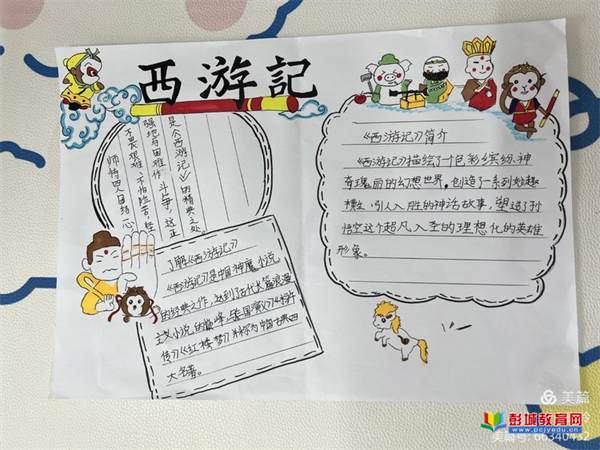 西游記
师徒四人团结一心
不畏艰难、不怕险苦、坚
强地与困难作斗争，这正
是《西游记》的精典之处
了解《西游记》
《西游记》是中国神魔小说
的经典之作，达到了古代长篇浪漫
主义小说的巅峰，与《三国演义》《水浒
传》《红楼梦》并称为中国古典四
大名著。
《西游记》简介
《西游记》描绘了一个色彩缤纷、神
奇瑰丽的幻想世界，创造了一系列妙趣
横生、引人入胜的神话故事，塑造了孙
悟空这个超凡入圣的理想化的英雄
形象。
美篇
彭城教育网
www.pcjyedu.cn
美篇号: 66340432